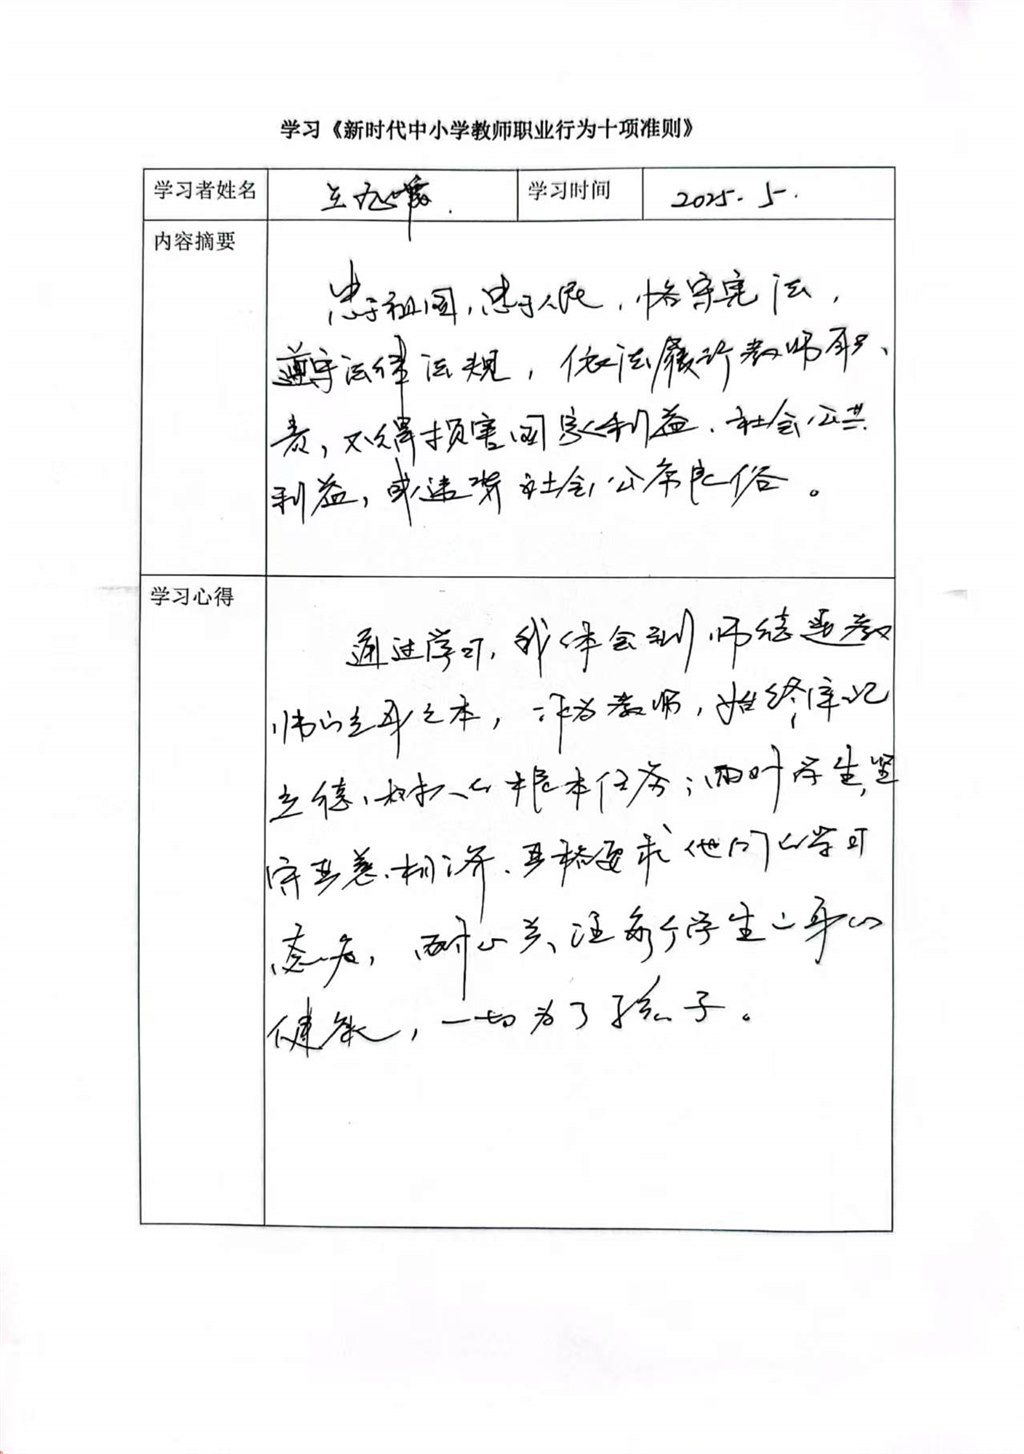 学习《新时代中小学教师职业行为十项准则》
学习者姓名
学习时间 2025.5.
内容摘要
忠于祖国，忠于人民，恪守宪法，
遵守法律法规，依法履行教师职
责，不得损害国家利益、社会公共
利益，或违背社会公序良俗。
学习心得
通过学习，我体会到师德是教
师的立身之本，作为教师，始终牢记
立德树人的根本任务；面对学生，坚
守慈、相济、严格要求他们的学习
态度，耐心关注每个学生的身心
健康，一切为了孩子。